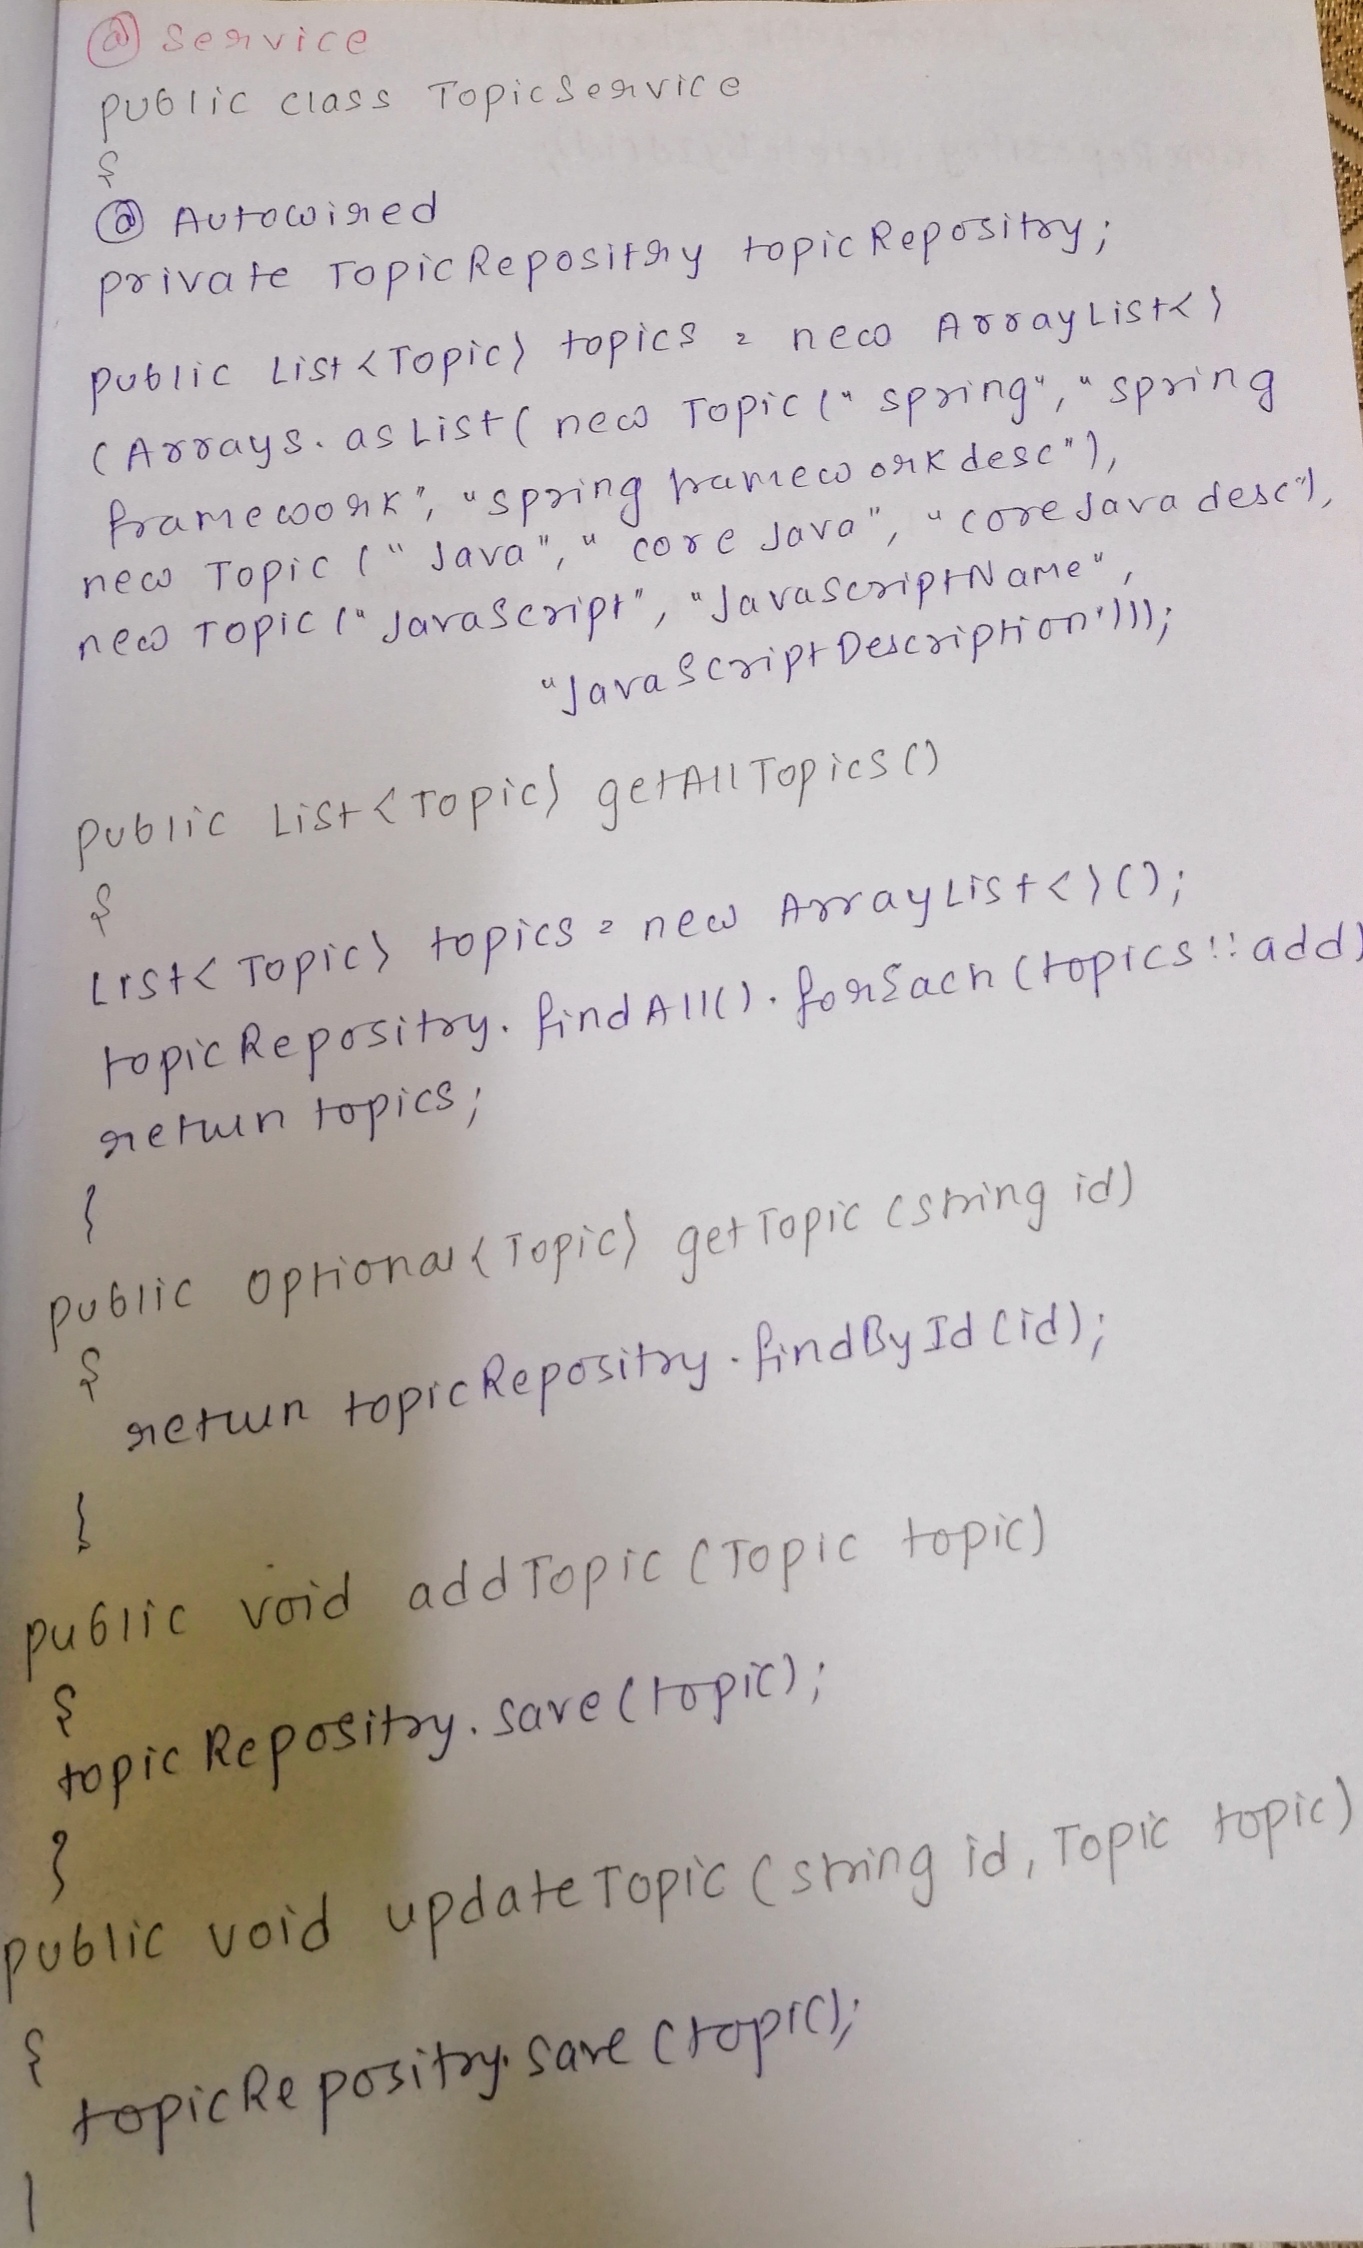 @ Service
public class TopicService
{
@ Autowired
private TopicRepository topicRepository;
public List<Topic> topics = new ArrayList<>
(Arrays.asList( new Topic (" spring", " spring
framework", "spring framework desc"),
new Topic (" Java", " core Java", " core Java desc"),
new Topic (" JavaScript", "JavaScriptName",
"JavaScriptDescription")));
public List<Topic> getAllTopics()
{
List<Topic> topics = new ArrayList<>();
topicRepository.findAll().forEach(topics::add)
return topics;
}
public Optional<Topic> getTopic (string id)
{
return topicRepository.findById(id);
}
public void addTopic (Topic topic)
{
topicRepository.save(topic);
}
public void updateTopic (string id, Topic topic)
{
topicRepository.save (topic);
}